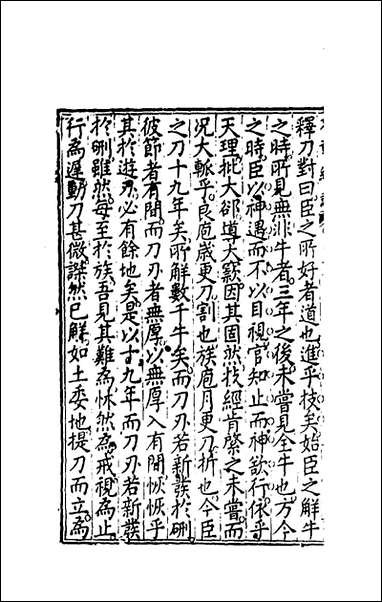 釋刀對曰臣之所好者道也進乎技矣始臣之解牛
之時所見無非牛者三年之後未嘗見全牛也方今
之時臣以神遇而不以目視官知止而神欲行依乎
天理批大郤導大窾因其固然技經肯綮之未嘗而
況大軱乎良庖歲更刀割也族庖月更刀折也今臣
之刀十九年矣所解數千牛矣而刀刃若新發於硎
彼節者有間而刀刃者無厚以無厚入有間恢恢乎
其於遊刃必有餘地矣是以十九年而刀刃若新發
於硎雖然每至於族吾見其難為怵然為戒視為止
行為遲動刀甚微謋然已解如土委地提刀而立為